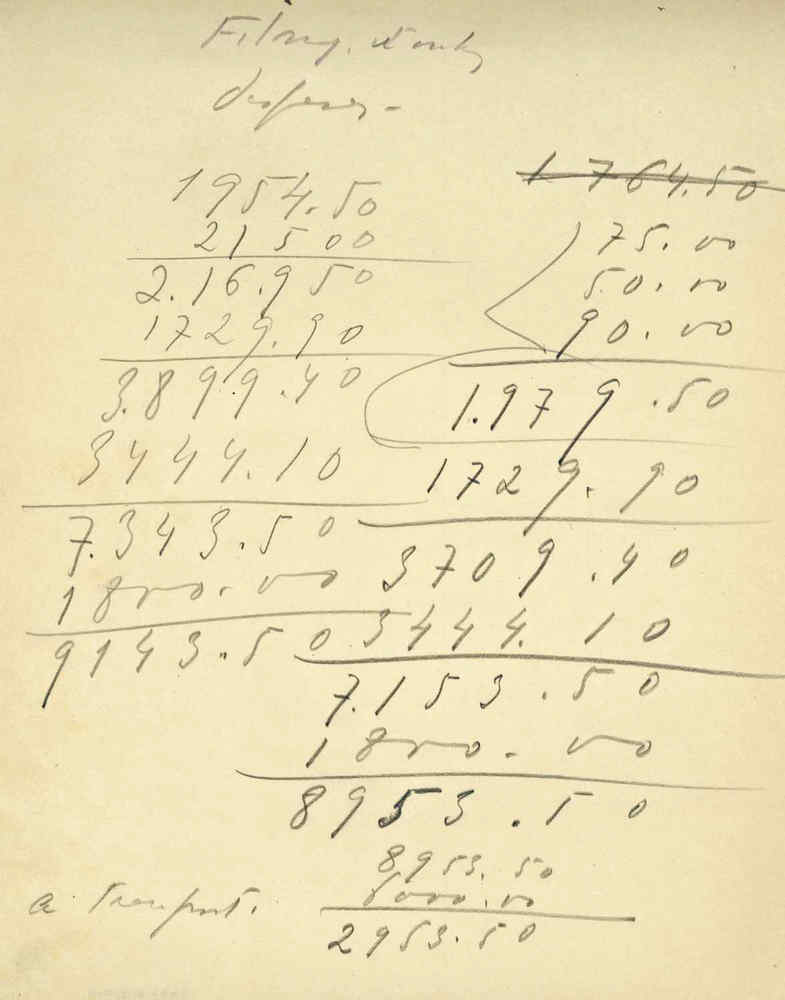 1954.50
215 00
2.16.9 50
1729.90
3.899.40
3444.10
7.343.50
1800.00
9143.50
1764.50
75.00
50.00
90.00
1.979.50
1729.90
3709.40
3444.10
7.153.50
1800.00
8953.50
8953.50
6000.00
a
2953.50